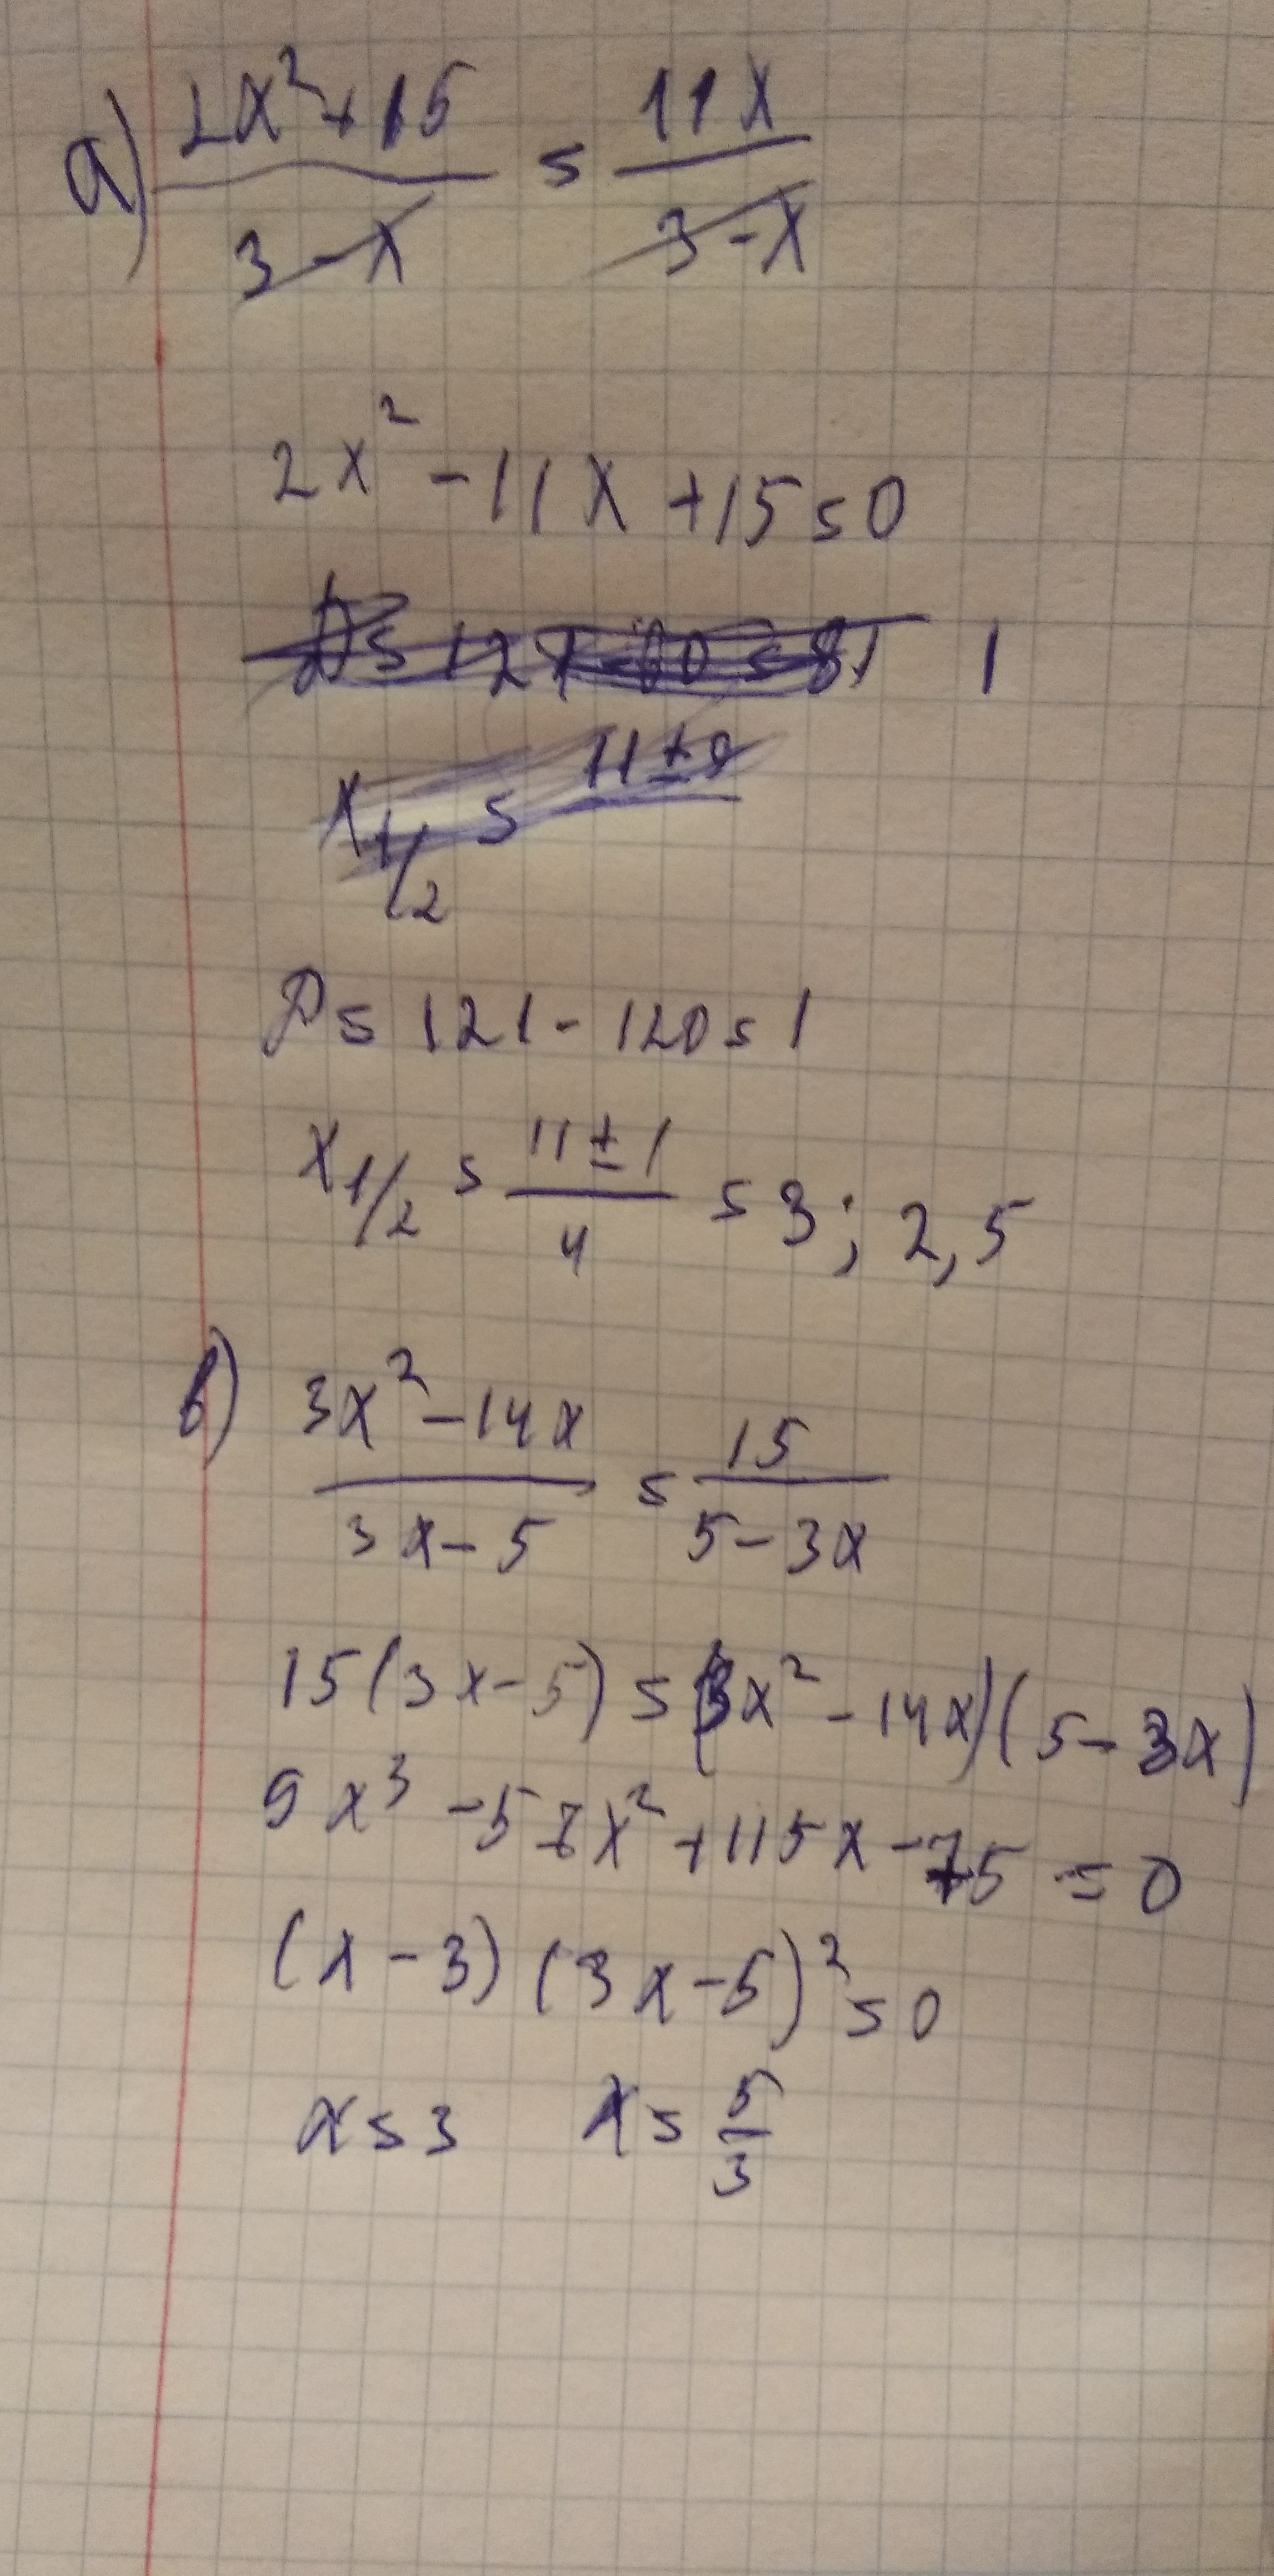 а) (2x²+15)/(3-x) = 11x/(3-x)
2x² - 11x + 15 = 0
1
x1/2 = 11±
D = 121 - 120 = 1
x1/2 = (11±1)/4 = 3; 2,5
в) (3x² - 14x)/(3x - 5) = 15/(5 - 3x)
15(3x - 5) = (3x² - 14x)(5 - 3x)
9x³ - 57x² + 115x - 75 = 0
(x - 3)(3x - 5)² = 0
x = 3 x = 5/3